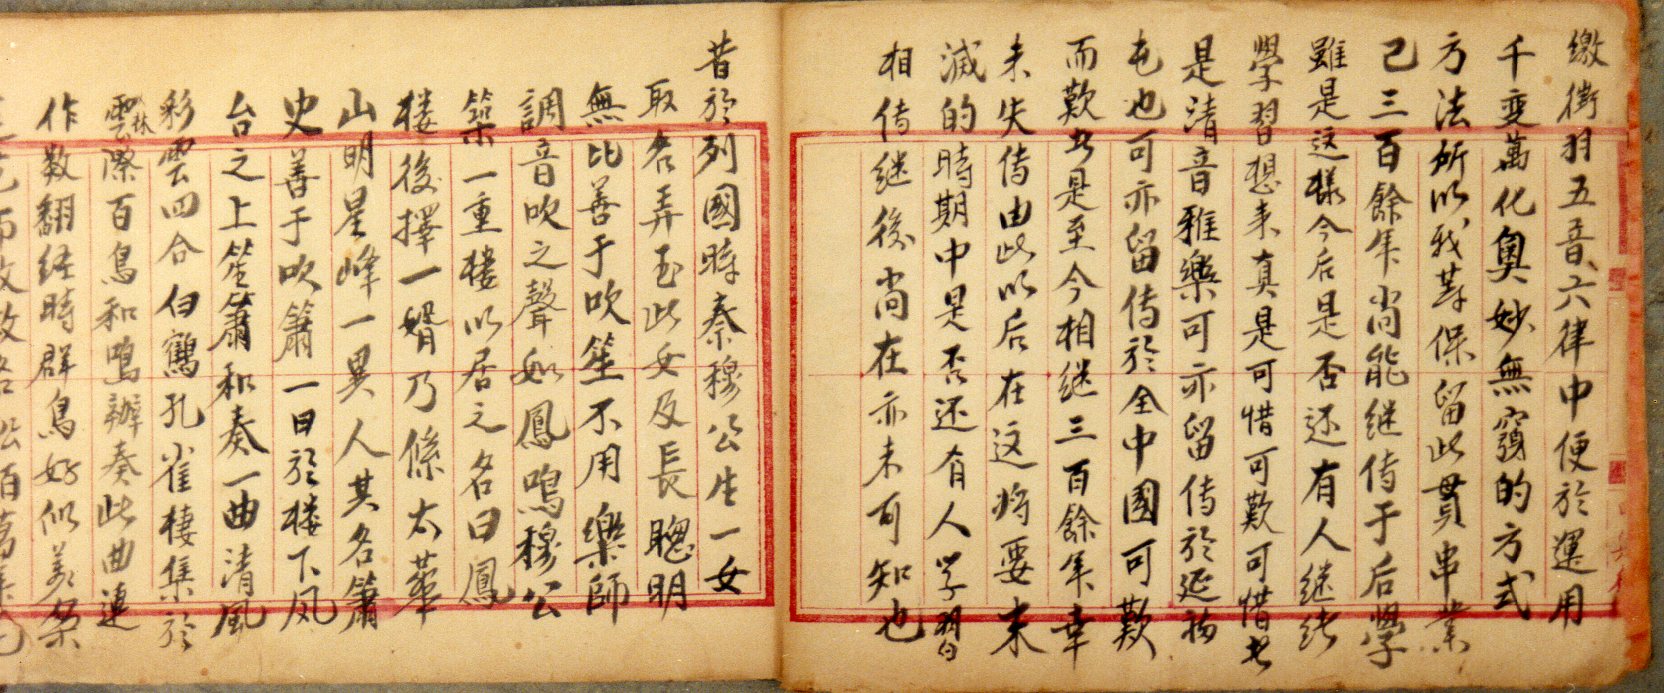 缴徵羽五音六律中便於運用
千变萬化奧妙無窮的方式
方法所以我等保留此貫串業
己三百餘年尚能继传于后學
雖是这樣今后是否还有人继绪
學習想来真是可惜可歎可惜也
是清音雅樂可亦留传於延
屯也可亦留传於全中國可歎
而歎也是至今相继三百餘年幸
未失传由此以后在这将要末
滅的時期中是否还有人学習的
相传继後尚在亦未可知也
昔於列國時秦穆公生一女
取名弄玉此女及長聰明
無比善于吹笙不用樂師
調音吹之聲如鳳鳴穆公
築一重楼以居之名曰鳳
楼後擇一婿乃係太華
山明星峰一異人其名簫
史善于吹簫一日於楼下风
台之上笙簫和奏一曲清風
彩雲四合白鶴孔雀棲集於
雲際林百鳥和鳴辦奏此曲連
作数翻经時群鳥好似